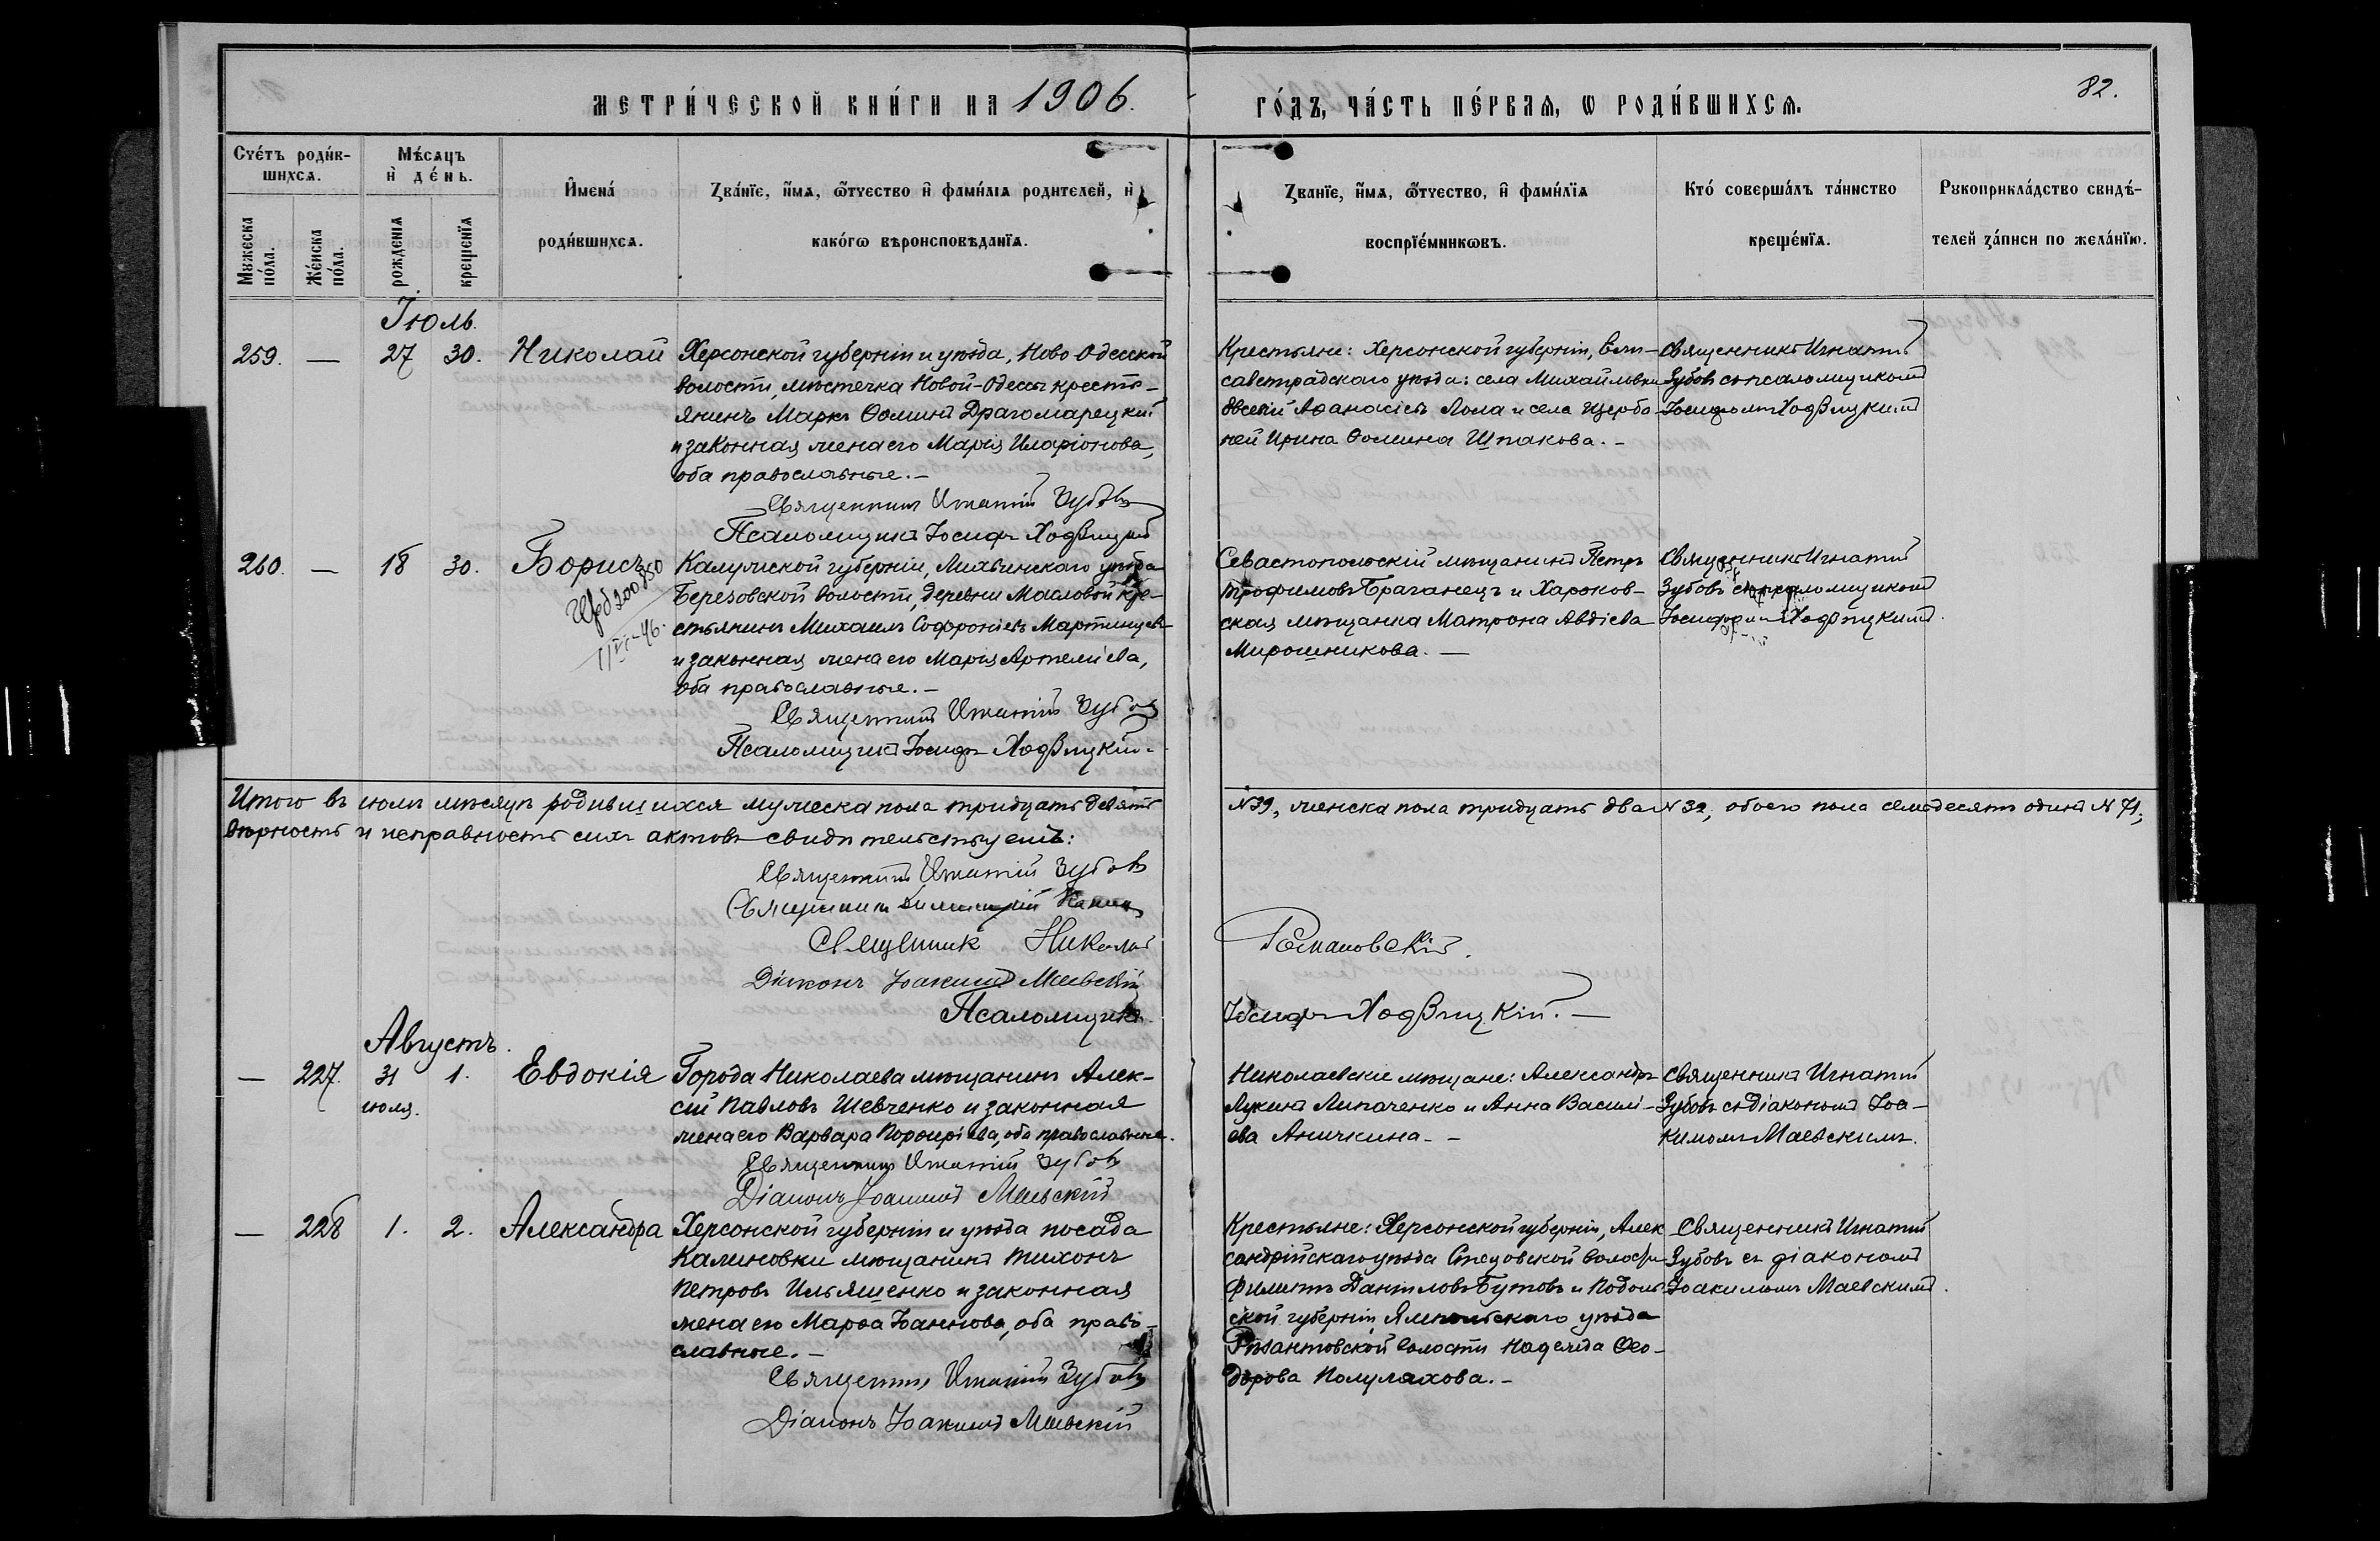 МЕТРИ́ЧЕСКОЙ КНИ́ГИ НА 1906.
ГО́ДЪ, ЧА́СТЬ ПЕ́РВАѦ, Ѡ РОДИ́ВШИХСѦ.
82.
Счéтъ роди́в-
шихсѧ.
Мꙋжеска
пóла.
Жéнска
пóла.
Мѣ́сѧцъ
и҆ дéнь.
рождéнїѧ
крещéнїѧ
И҆мена́
роди́вшихсѧ.
Зва́нїе, и҆́мѧ, ѻ҆́тчество и҆ фами́лїѧ родителей, и҆
како́гѡ вѣроисповѣ́данїѧ.
Зва́нїе, и҆́мѧ, ѻ҆́тчество, и҆ фами́лїѧ
воспрїе́мникѡвъ.
Кто́ соверша́лъ та́инство
креще́нїѧ.
Рꙋкоприкла́дство свидѣ́-
телей за́писи по жела́нїю.
Іюль.
259. — 27 30. Николай
Херсонской губерніи и уѣзда, Ново Одесской
волости, мѣстечка Новой-Одессы кресть-
янинъ Маркъ Ѳоминъ Драгомарецкій
и законная жена его Марія Иларіонова,
оба православные. –
Священникъ Игнатій Зубовъ
Псаломщикъ Іосифъ Ходзицкій
Крестьяне: Херсонской губерніи, Ели-
саветградскаго уѣзда: села Михайловки
Аѳанасіевъ Лола и села Щерба-
ней Ирина Ѳомина Шпакова. –
Священникъ Игнатій
Зубовъ съ псаломщикомъ
Іосифомъ Ходзицкимъ
260. — 18 30. Борисъ
11 VI-46.
Калужской губерніи, Лихвинскаго уѣзда
Березовской волости, деревни Масловой кре-
стьянинъ Михаилъ Софроніевъ Мартынцевъ
и законная жена его Марія Артеміева,
оба православные. –
Священникъ Игнатій Зубовъ
Псаломщикъ Іосифъ Ходзицкій.
Севастопольскій мѣщанинъ Петръ
Трофимовъ Браганецъ и Харьков-
ская мѣщанка Матрона Авдіева
Мирошникова. —
Священникъ Игнатій
Зубовъ съ псаломщикомъ
Іосифомъ Ходзицкимъ.
Итого въ іюлѣ мѣсяцѣ родившихся мужеска пола тридцать девять N 39, женска пола тридцать два N 32, обоего пола семьдесятъ одинъ N 71;
вѣрность и исправность сихъ актовъ свидѣтельствуемъ:
Священникъ Игнатій Зубовъ
Священникъ
Священникъ Николай Романовскій.
Діаконъ Іоакимъ Маевскій
Псаломщикъ Іосифъ Ходзицкій. —
Августъ.
— 227. 31 1. Евдокія
іюля.
Города Николаева мѣщанинъ Алек-
сій Павловъ Шевченко и законная
жена его Варвара Порфиріева, оба православные.
Священникъ Игнатій Зубовъ
Діаконъ Іоакимъ Маевскій
Николаевскіе мѣщане: Александръ
Лукинъ Липаченко и Анна Василі-
ева Аничкина. –
Священникъ Игнатій
Зубовъ съ діакономъ Іоа-
кимомъ Маевскимъ.
— 228 1. 2. Александра
Херсонской губерніи и уѣзда посада
Калиновки мѣщанинъ Тихонъ
Петровъ Ильяшенко и законная
жена его Марѳа Іоаннова, оба право-
славные. –
Священникъ Игнатій Зубовъ
Діаконъ Іоакимъ Маевскій
Крестьяне: Херсонской губерніи, Алек
сандрійскаго уѣзда Стецовской волости
Филиппъ Даниловъ Бутовъ и Подоль-
ской губерніи Ямпольскаго уѣзда
волости Надежда Ѳео-
дорова Полуляхова. –
Священникъ Игнатій
Зубовъ съ діакономъ
Іоакимомъ Маевскимъ.